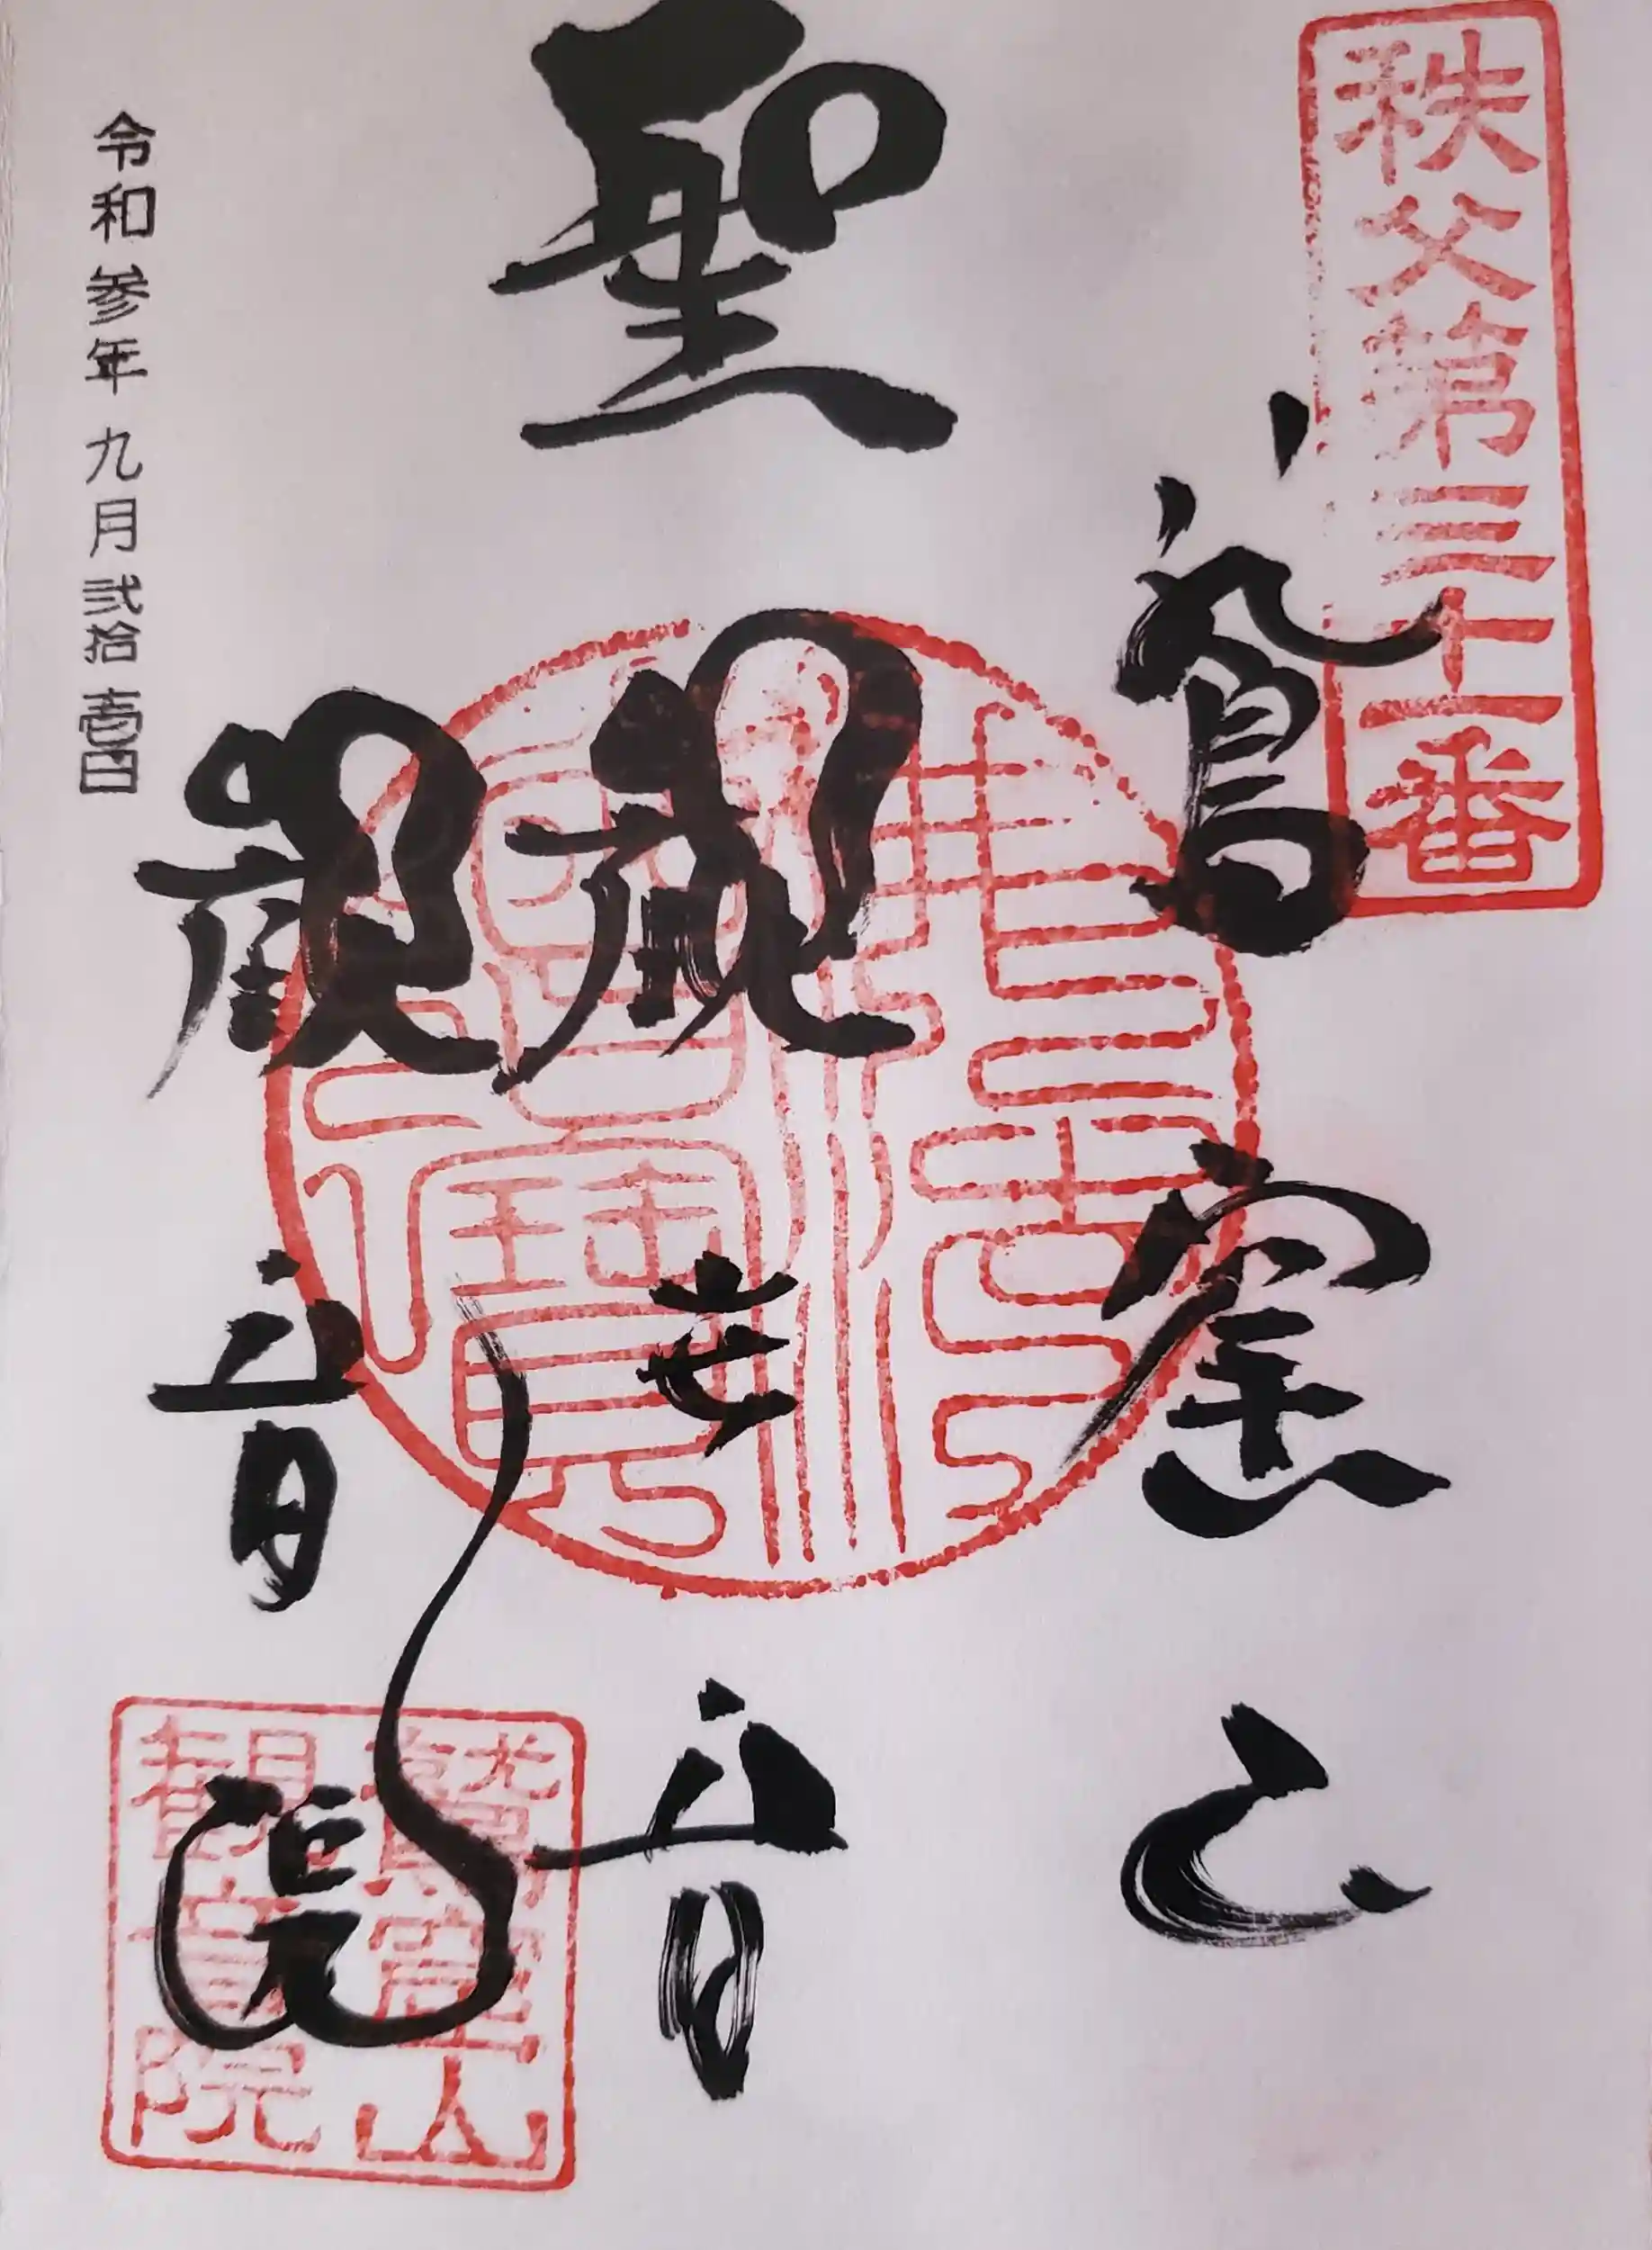 秩父第三十一番
鷲窟山
聖観世音
佛法僧寶
観音院
鷲窟山
観音院
令和参年九月弐拾壱日